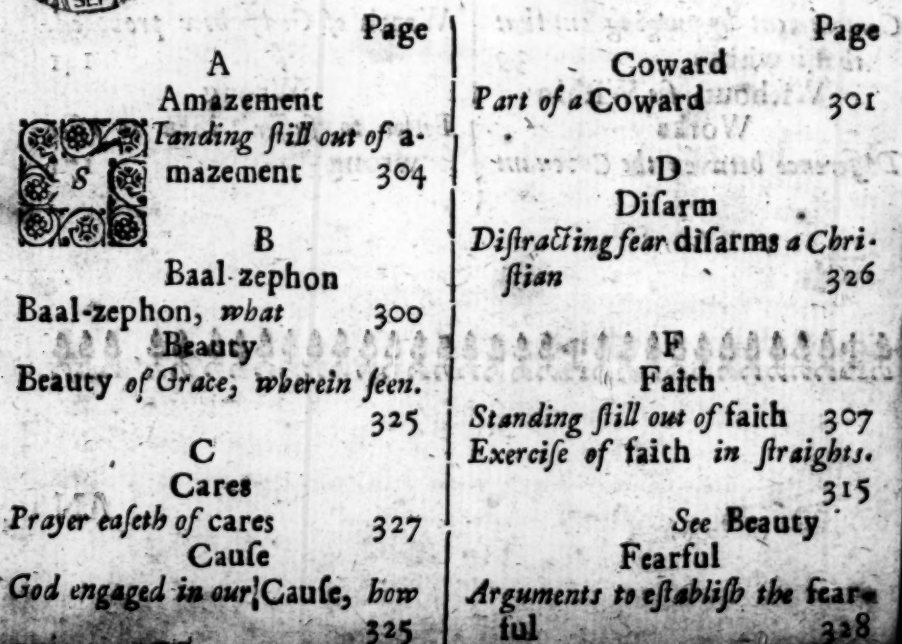 Page
A
Amazement
STanding ſtill out of a-
mazement 304
B
Baal-zephon
Baal-zephon, what 300
Beauty
Beauty of Grace, wherein ſeen.
325
C
Cares
Prayer eaſeth of cares 327
Cauſe
God engaged in our Cauſe, how
325
Page
Coward
Part of a Coward 301
D
Diſarm
Diſtracting fear diſarms a Chri-
ſtian 326
F
Faith
Standing ſtill out of faith 307
Exerciſe of faith in ſtraights.
315
See Beauty
Fearful
Arguments to eſtabliſh the fear-
ful 328